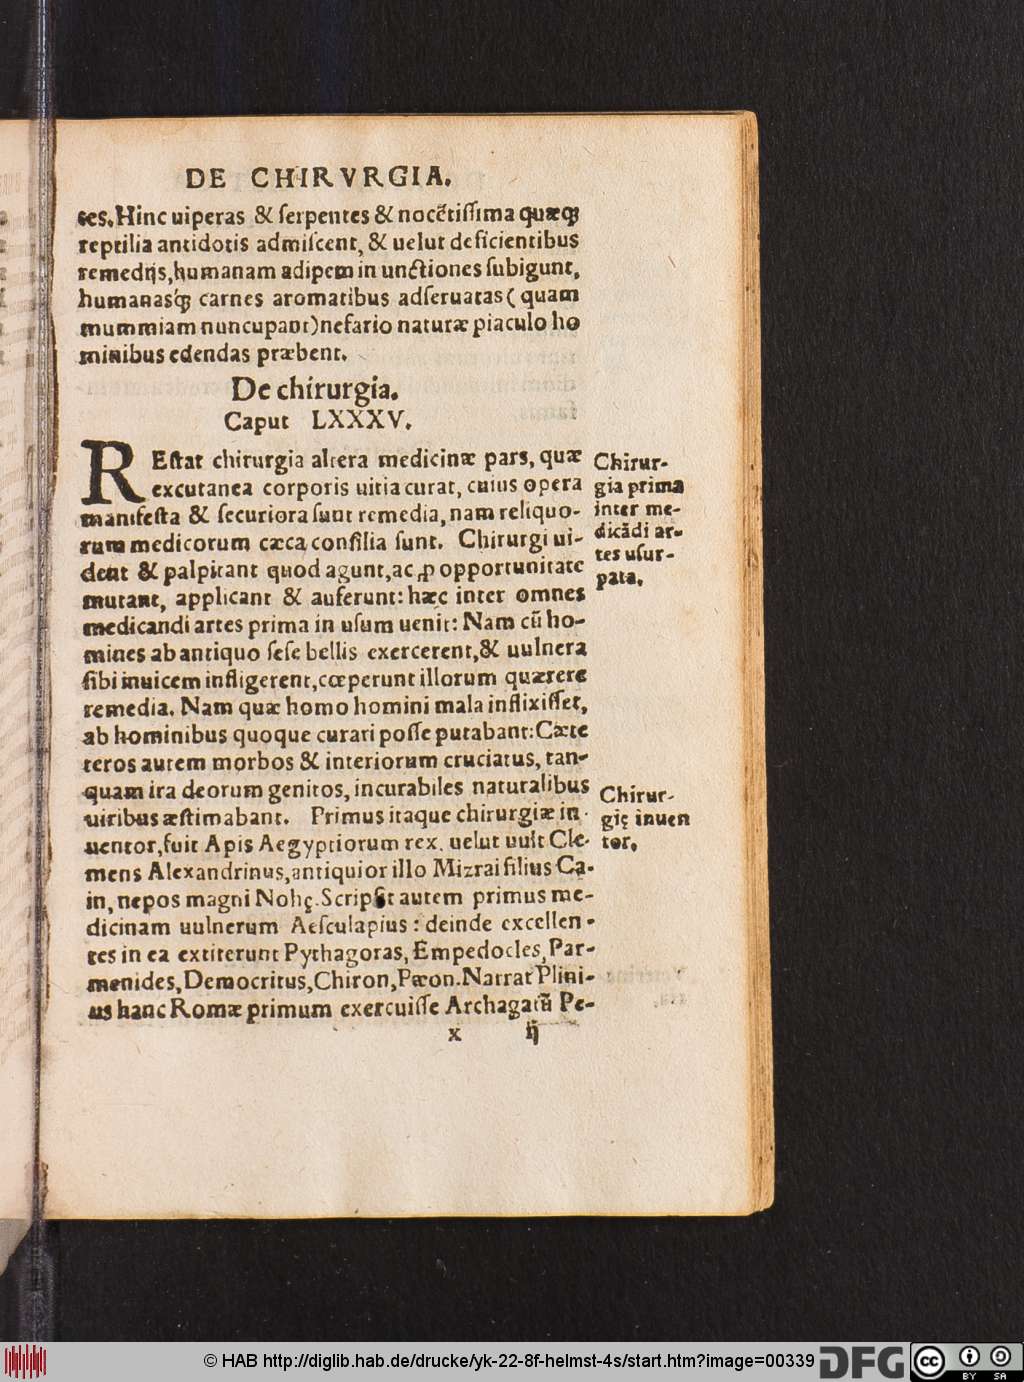 DE CHIRVRGIA.
tes. Hinc uiperas & ſerpentes & nocẽtiſſima quæqꝫ
reptilia antidotis admiſcent, & uelut deficientibus
remedijs, humanam adipem in unctiones ſubigunt,
humanasqꝫ carnes aromatibus adſeruatas (quam
mummiam nuncupant) nefario naturæ piaculo ho
minibus edendas præbent.
De chirurgia.
Caput LXXXV.
REſtat chirurgia altera medicinæ pars, quæ
excutanea corporis uitia curat, cuius opera
manifeſta & ſecuriora ſunt remedia, nam reliquo-
rum medicorum cæca conſilia ſunt. Chirurgi ui-
dent & palpitant quod agunt, ac ꝓ opportunitate
mutant, applicant & auferunt: hæc inter omnes
medicandi artes prima in uſum uenit: Nam cũ ho-
mines ab antiquo ſeſe bellis exercerent, & uulnera
ſibi inuicem infligerent, cœperunt illorum quærere
remedia. Nam quæ homo homini mala inflixiſſet,
ab hominibus quoque curari poſſe putabant: Cæte
teros autem morbos & interiorum cruciatus, tan-
quam ira deorum genitos, incurabiles naturalibus
uiribus æſtimabant. Primus itaque chirurgiæ in-
uentor, fuit Apis Aegyptiorum rex, uelut uult Cle-
mens Alexandrinus, antiquior illo Mizrai filius Ca-
in, nepos magni Nohę. Scripſit autem primus me-
dicinam uulnerum Aeſculapius: deinde excellen-
tes in ea extiterunt Pythagoras, Empedocles, Par-
menides, Democritus, Chiron, Pæon. Narrat Plini-
us hanc Romæ primum exercuiſſe Archagatũ Pe-
x ij
Chirur-
gia prima
inter me-
dicãdi ar-
tes uſur-
pata.
Chirur-
gię inuen
tor.
© HAB http://diglib.hab.de/drucke/yk-22-8f-helmst-4s/start.htm?image=00339
DFG
cc
BY SA